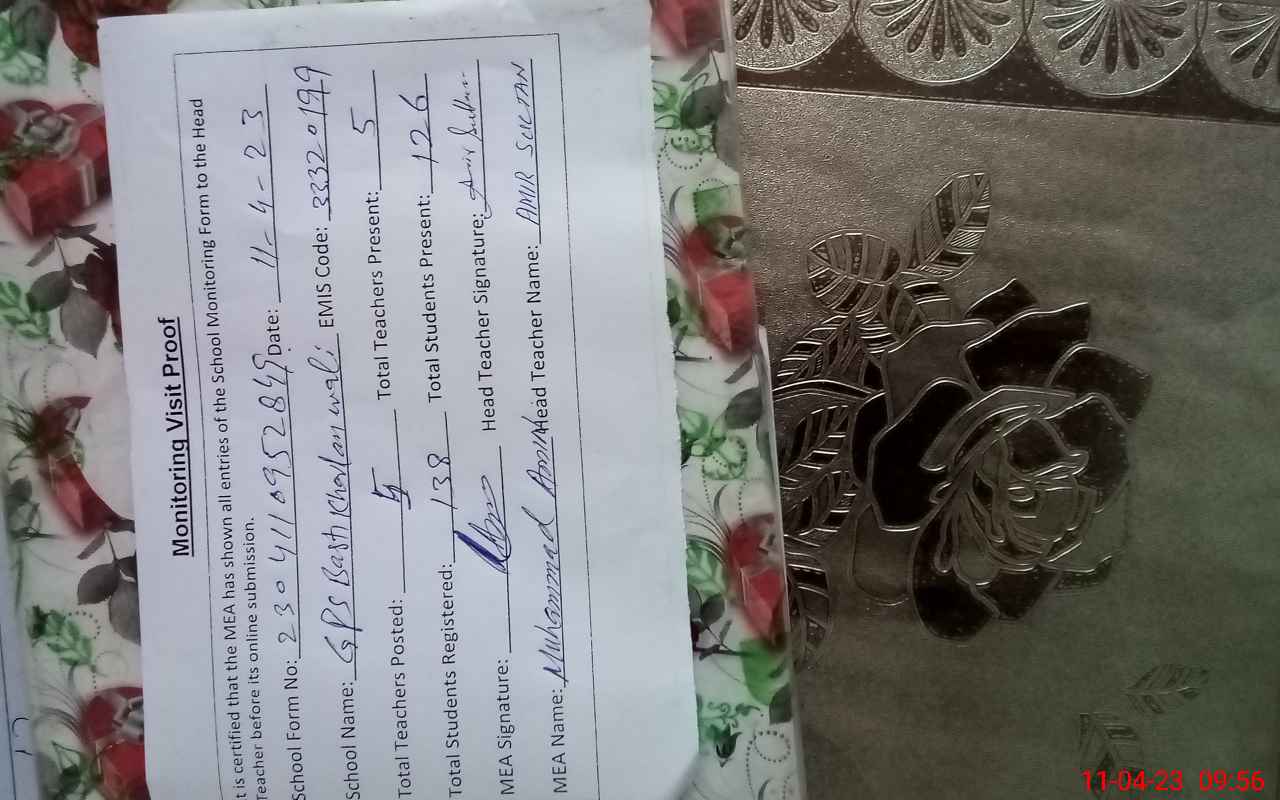 Monitoring Visit Proof
t is certified that the MEA has shown all entries of the School Monitoring Form to the Head
Teacher before its online submission.
School Form No: 2304110952849 Date: 11-4-23
School Name: GPS Basti Khadan wali EMIS Code: 33320199
Total Teachers Posted: 5 Total Teachers Present: 5
Total Students Registered: 138 Total Students Present: 126
MEA Signature: Head Teacher Signature: Amir Sultan
MEA Name: Muhammad Amin Head Teacher Name: AMIR SULTAN
11-04-23 09:56